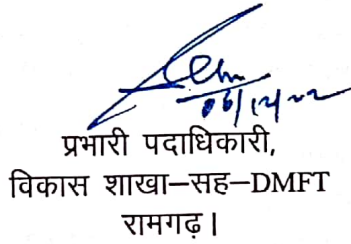 06/12/22
प्रभारी पदाधिकारी,
विकास शाखा–सह–DMFT
रामगढ़।